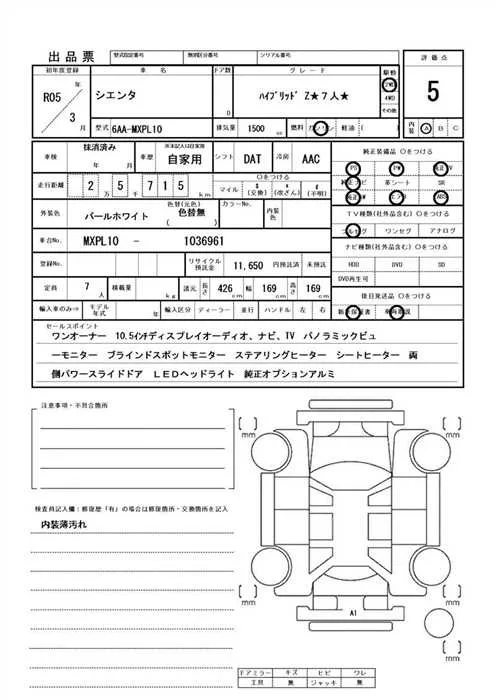 出品票 型式指定番号 類別区分番号 シリアル番号
初年度登録 車名 ドア数 グレード 駆動 評価点
R05 年 3 月 シエンタ D ハイブリッド Z★7人★ 2WD 4WD その他 5
型式 6AA-MXPL10 排気量 1500 cc 燃料 ガソリン 軽油 ( ) 内装 A B C
車検 抹消済み 年 月 車歴 ※未記入は自家用 自家用 シフト DAT 冷房 AAC 純正装備品 〇をつける
PS PW 純正TV
走行距離 2万5千715km 〇をつける マイル $(交換) *(改ざん) #(不明) 純正ナビ 革シート SR
純正AW エアB ABS
外装色 パールホワイト 色替(元色) 色替無 ( ) カラーNo. 内装色 TV種類(社外品含む) 〇をつける
フルセグ ワンセグ アナログ
車台No. MXPL10 - 1036961 ナビ種類(社外品含む) 〇をつける
登録No. リサイクル預託金 11,650 円預託済 未預託 HDD DVD SD
DVD再生可
定員 7人 積載量 kg 諸元 長さ 426cm 幅 169cm 高さ 169cm 後日発送品 〇をつける
輸入車のみ⇒ モデル年式 年 輸入区分 ディーラー 並行 ハンドル 左 右 新車保証書 車両取説
セールスポイント
ワンオーナー 10.5インチディスプレイオーディオ、ナビ、TV パノラミックビュ
ーモニター ブラインドスポットモニター ステアリングヒーター シートヒーター 両
側パワースライドドア LEDヘッドライト 純正オプションアルミ
注意事項・不具合箇所
mm mm
検査員記入欄:修復歴「有」の場合は修復箇所・交換箇所を記入
内装薄汚れ
mm mm
A1
ドアミラー キズ ヒビ ワレ
工具 無 ジャッキ 無